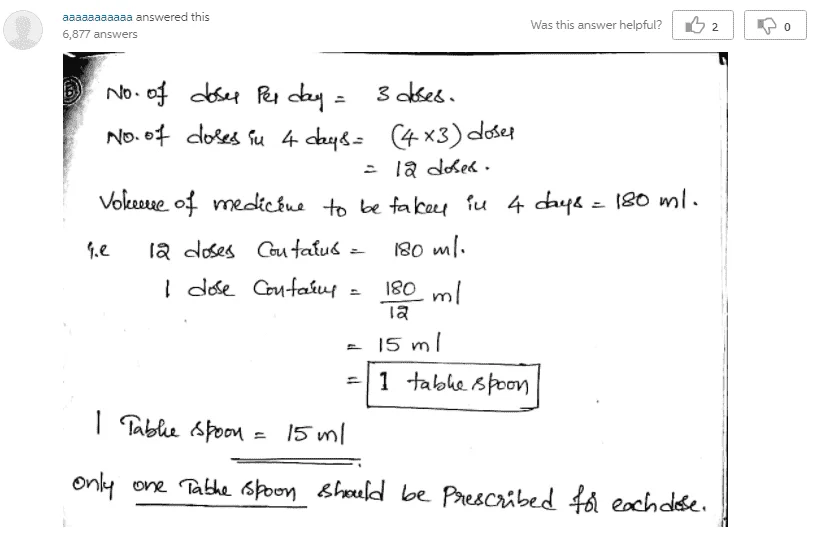 aaaaaaaaaaa answered this
6,877 answers
Was this answer helpful?
2
0
No. of doses Per day = 3 doses.
No. of doses in 4 days = (4 x3) doses
= 12 doses.
Volume of medicine to be taken in 4 days = 180 ml.
i.e 12 doses Contains = 180 ml.
1 dose Contains = 180/12 ml
= 15 ml
= 1 table spoon
1 Table spoon = 15 ml
only one Table spoon should be Prescribed for each dose.